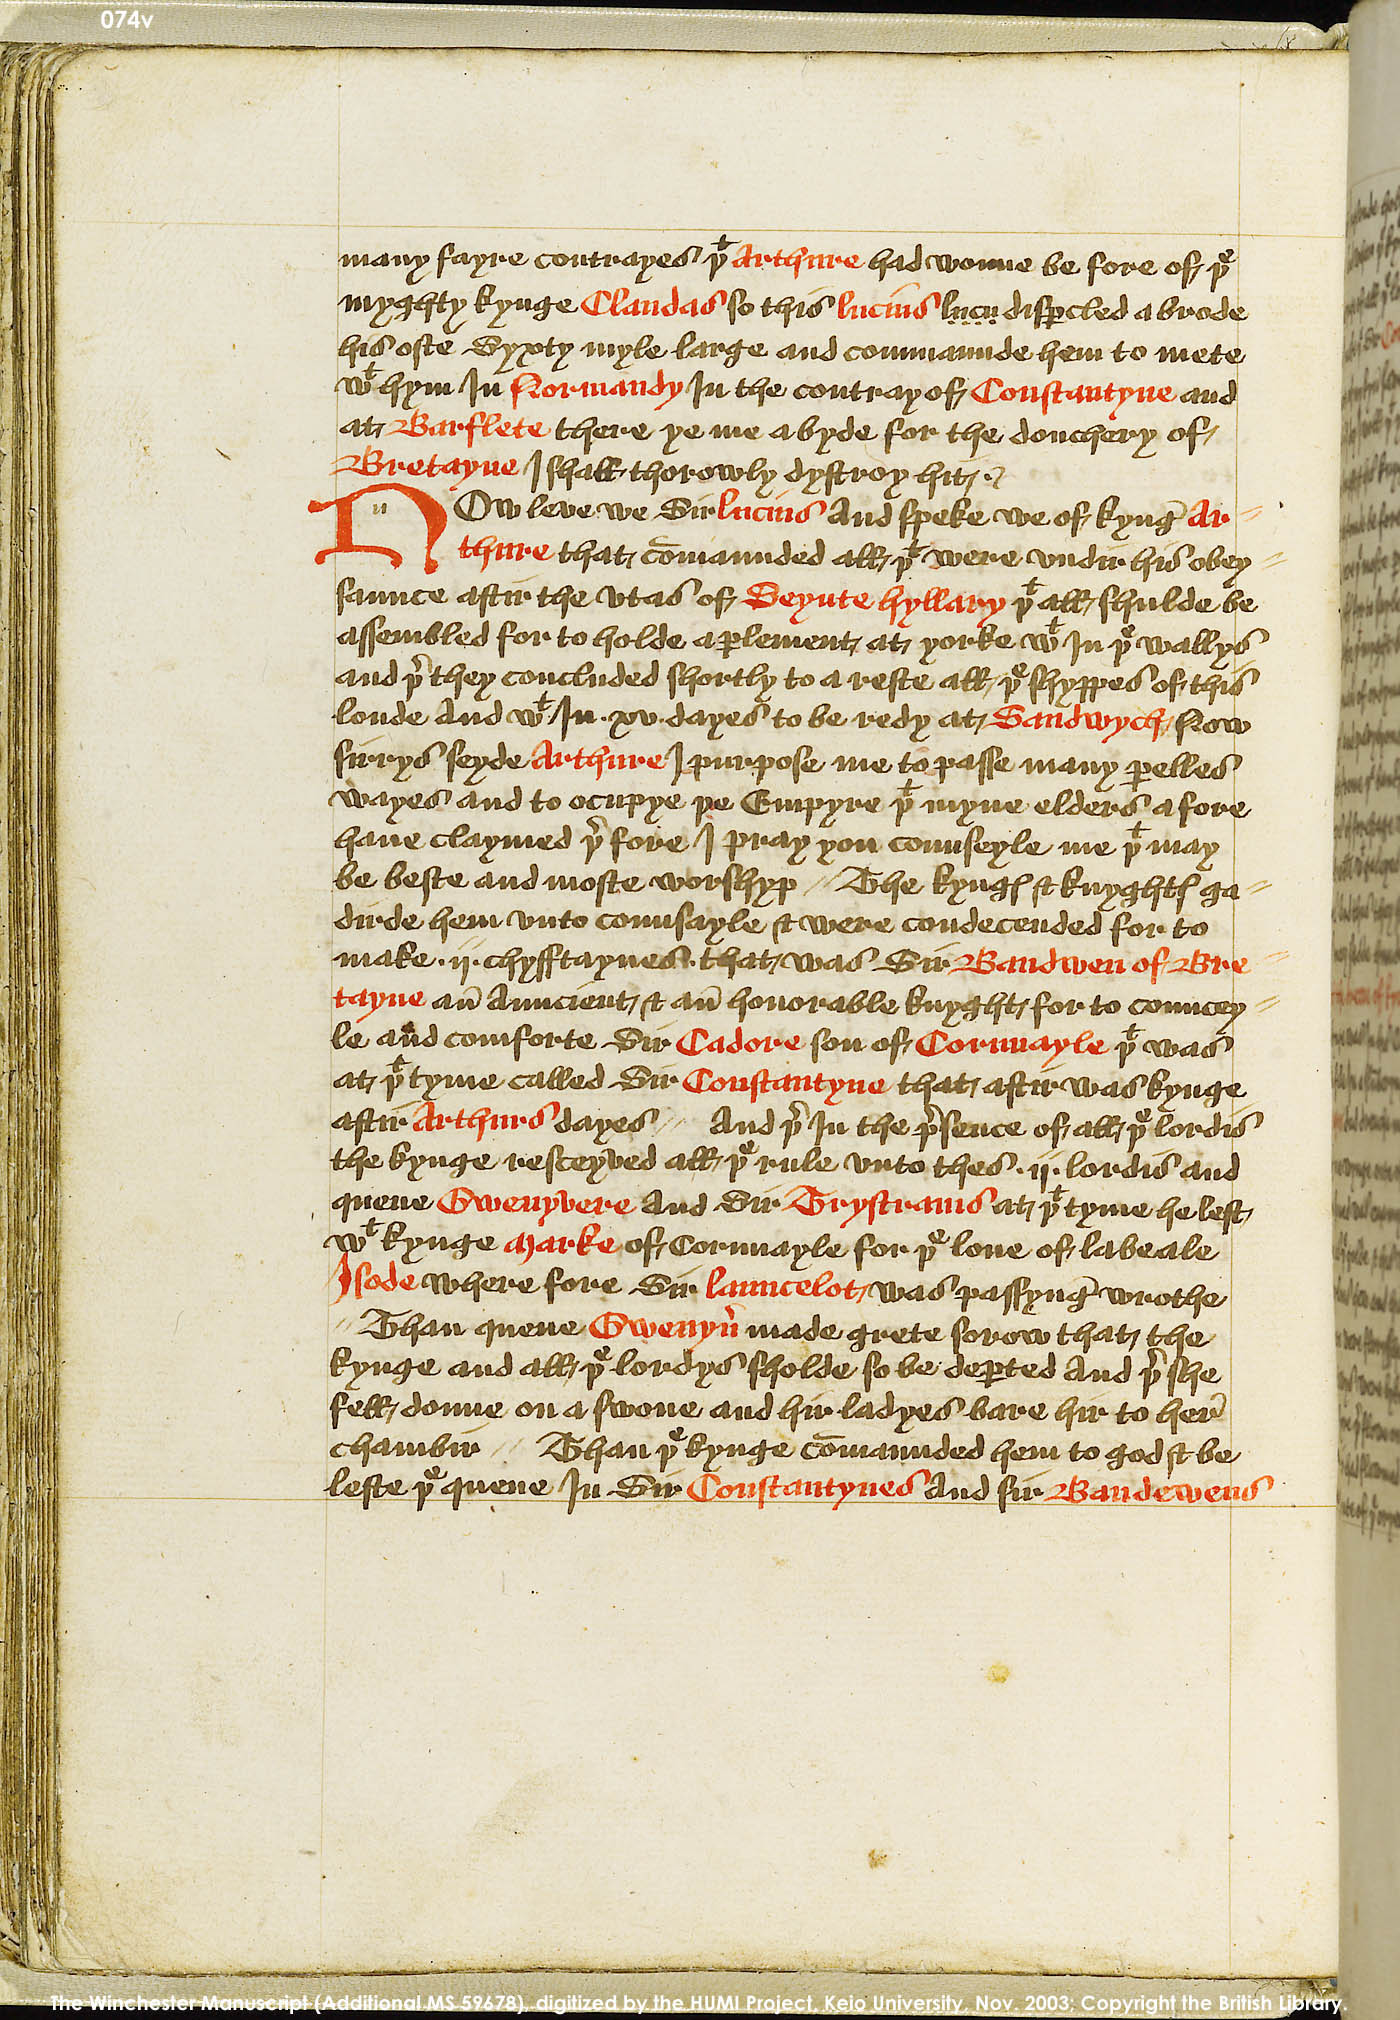 074v
many fayre contrayes þͭ Arthure had wonne be fore of þͤ
myghty kynge Claudas so this lucius lucu disꝑcled a brode
his oste Syxty myle large and commaunde hem to mete
wͭ hym In Normandy In the contray of Constantyne and
at Barflete there ye me a byde for the douchery of
Bretayne I shall thorowly dystroy hit
n
NOw leve we Sir lucius And speke we of kyng Ar
thure that cōmaunded all þͭ were vndir his obey
saunce aftir the vtas of Seynte hyllary þͭ all shulde be
assembled for to holde a ꝑlement at yorke wͭ In þͤ wallys
and þ̉ they concluded shortly to a reste all þͤ shyppes of this
londe And wͭ In ·xv· dayes to be redy at Sandwych Now
sirrys seyde Arthure I purpose me to passe many ꝑelles
wayes and to ocupye þe Empyre þͭ myne elders a fore
haue claymed þ̉ fore I pray you counseyle me þͭ may
be beste and moste worshyp // The kyngꝭ & knyghtꝭ ga
dirde hem vnto counsayle & were condecended for to
make ·ij· chyfftaynes that was Sir Baudwen of Bre
tayne an̄ Auncient & an̄ honorable knyght for to councey
le and comforte Sir Cadore son of Cornuayle þͭ was
at þͭ tyme called Sir Constantyne that aftir was kynge
aftir Arthurs dayes // And þ̉ In the p̉sence of all þͤ lordis
the kynge resceyved all þͤ rule vnto thes ·ij· lordis and
quene Gwenyvere And Sir Trystrams at þͭ tyme he left
wͭ kynge Marke of Cornuayle for þͤ loue of labeale
Isode where fore Sir launcelot was passyng wrothe
// Than quene Gwenyv̉ made grete sorow that the
kynge and all þͤ lordys sholde so be deꝑted And þ̉ she
fell doune on a swone and hir ladyes bare hir to her
chambir // Than þͤ kynge cōmaunded hem to god & be
lefte þͤ quene In Sir Constantynes And sir Baudewens
The Winchester Manuscript (Additional MS 59678), digitized by the HUMI Project, Keio University, Nov. 2003; Copyright the British Library.